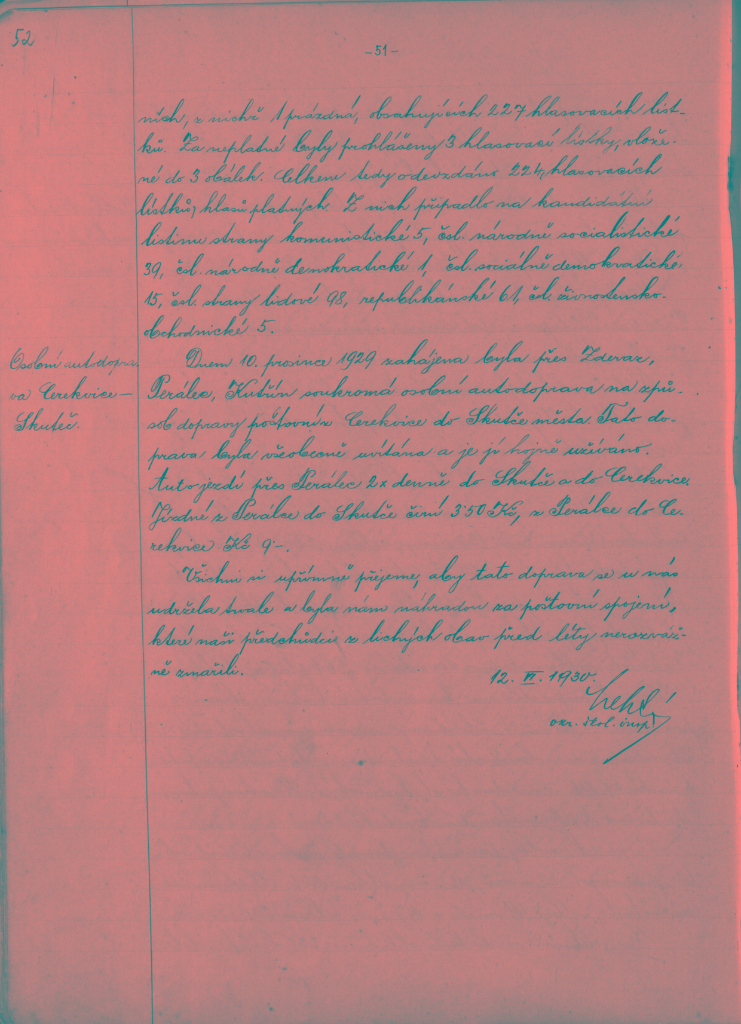 52
- 51 -
nich, z nichž 1 prázdná, obsahujících 227 hlasovacích líst-
ků. Za neplatné byly prohlášeny 3 hlasovací lístky, vlože-
né do 3 obálek. Celkem tedy odevzdáno 224 hlasovacích
lístků, hlasů platných. Z nich připadlo na kandidátní
listinu strany komunistické 5, čsl. národně socialistické
39, čsl. národně demokratické 1, čsl. sociálně demokratické
15, čsl. strany lidové 98, republikánské 61, čsl. živnostensko-
obchodnické 5.
Osobní autodopra-
va Cerekvice—
Skuteč.
Dnem 10. prosince 1929 zahájena byla přes Zderaz,
Perálec, Kutřín soukromá osobní autodoprava na způ-
sob dopravy poštovní z Cerekvice do Skutče města. Tato do-
prava byla všeobecně uvítána a je jí hojně užíváno.
Auto jezdí přes Perálec 2x denně do Skutče a do Cerekvice.
Jízdné z Perálce do Skutče činí 3·50 Kč, z Perálce do Ce-
rekvice Kč 9-.
Všichni si upřímně přejeme, aby tato doprava se u nás
udržela trvale a byla nám náhradou za poštovní spojení,
které naši předchůdci z lichých obav před léty nerozváž-
ně zmařili.
12. VI. 1930.
okr. škol. insp.